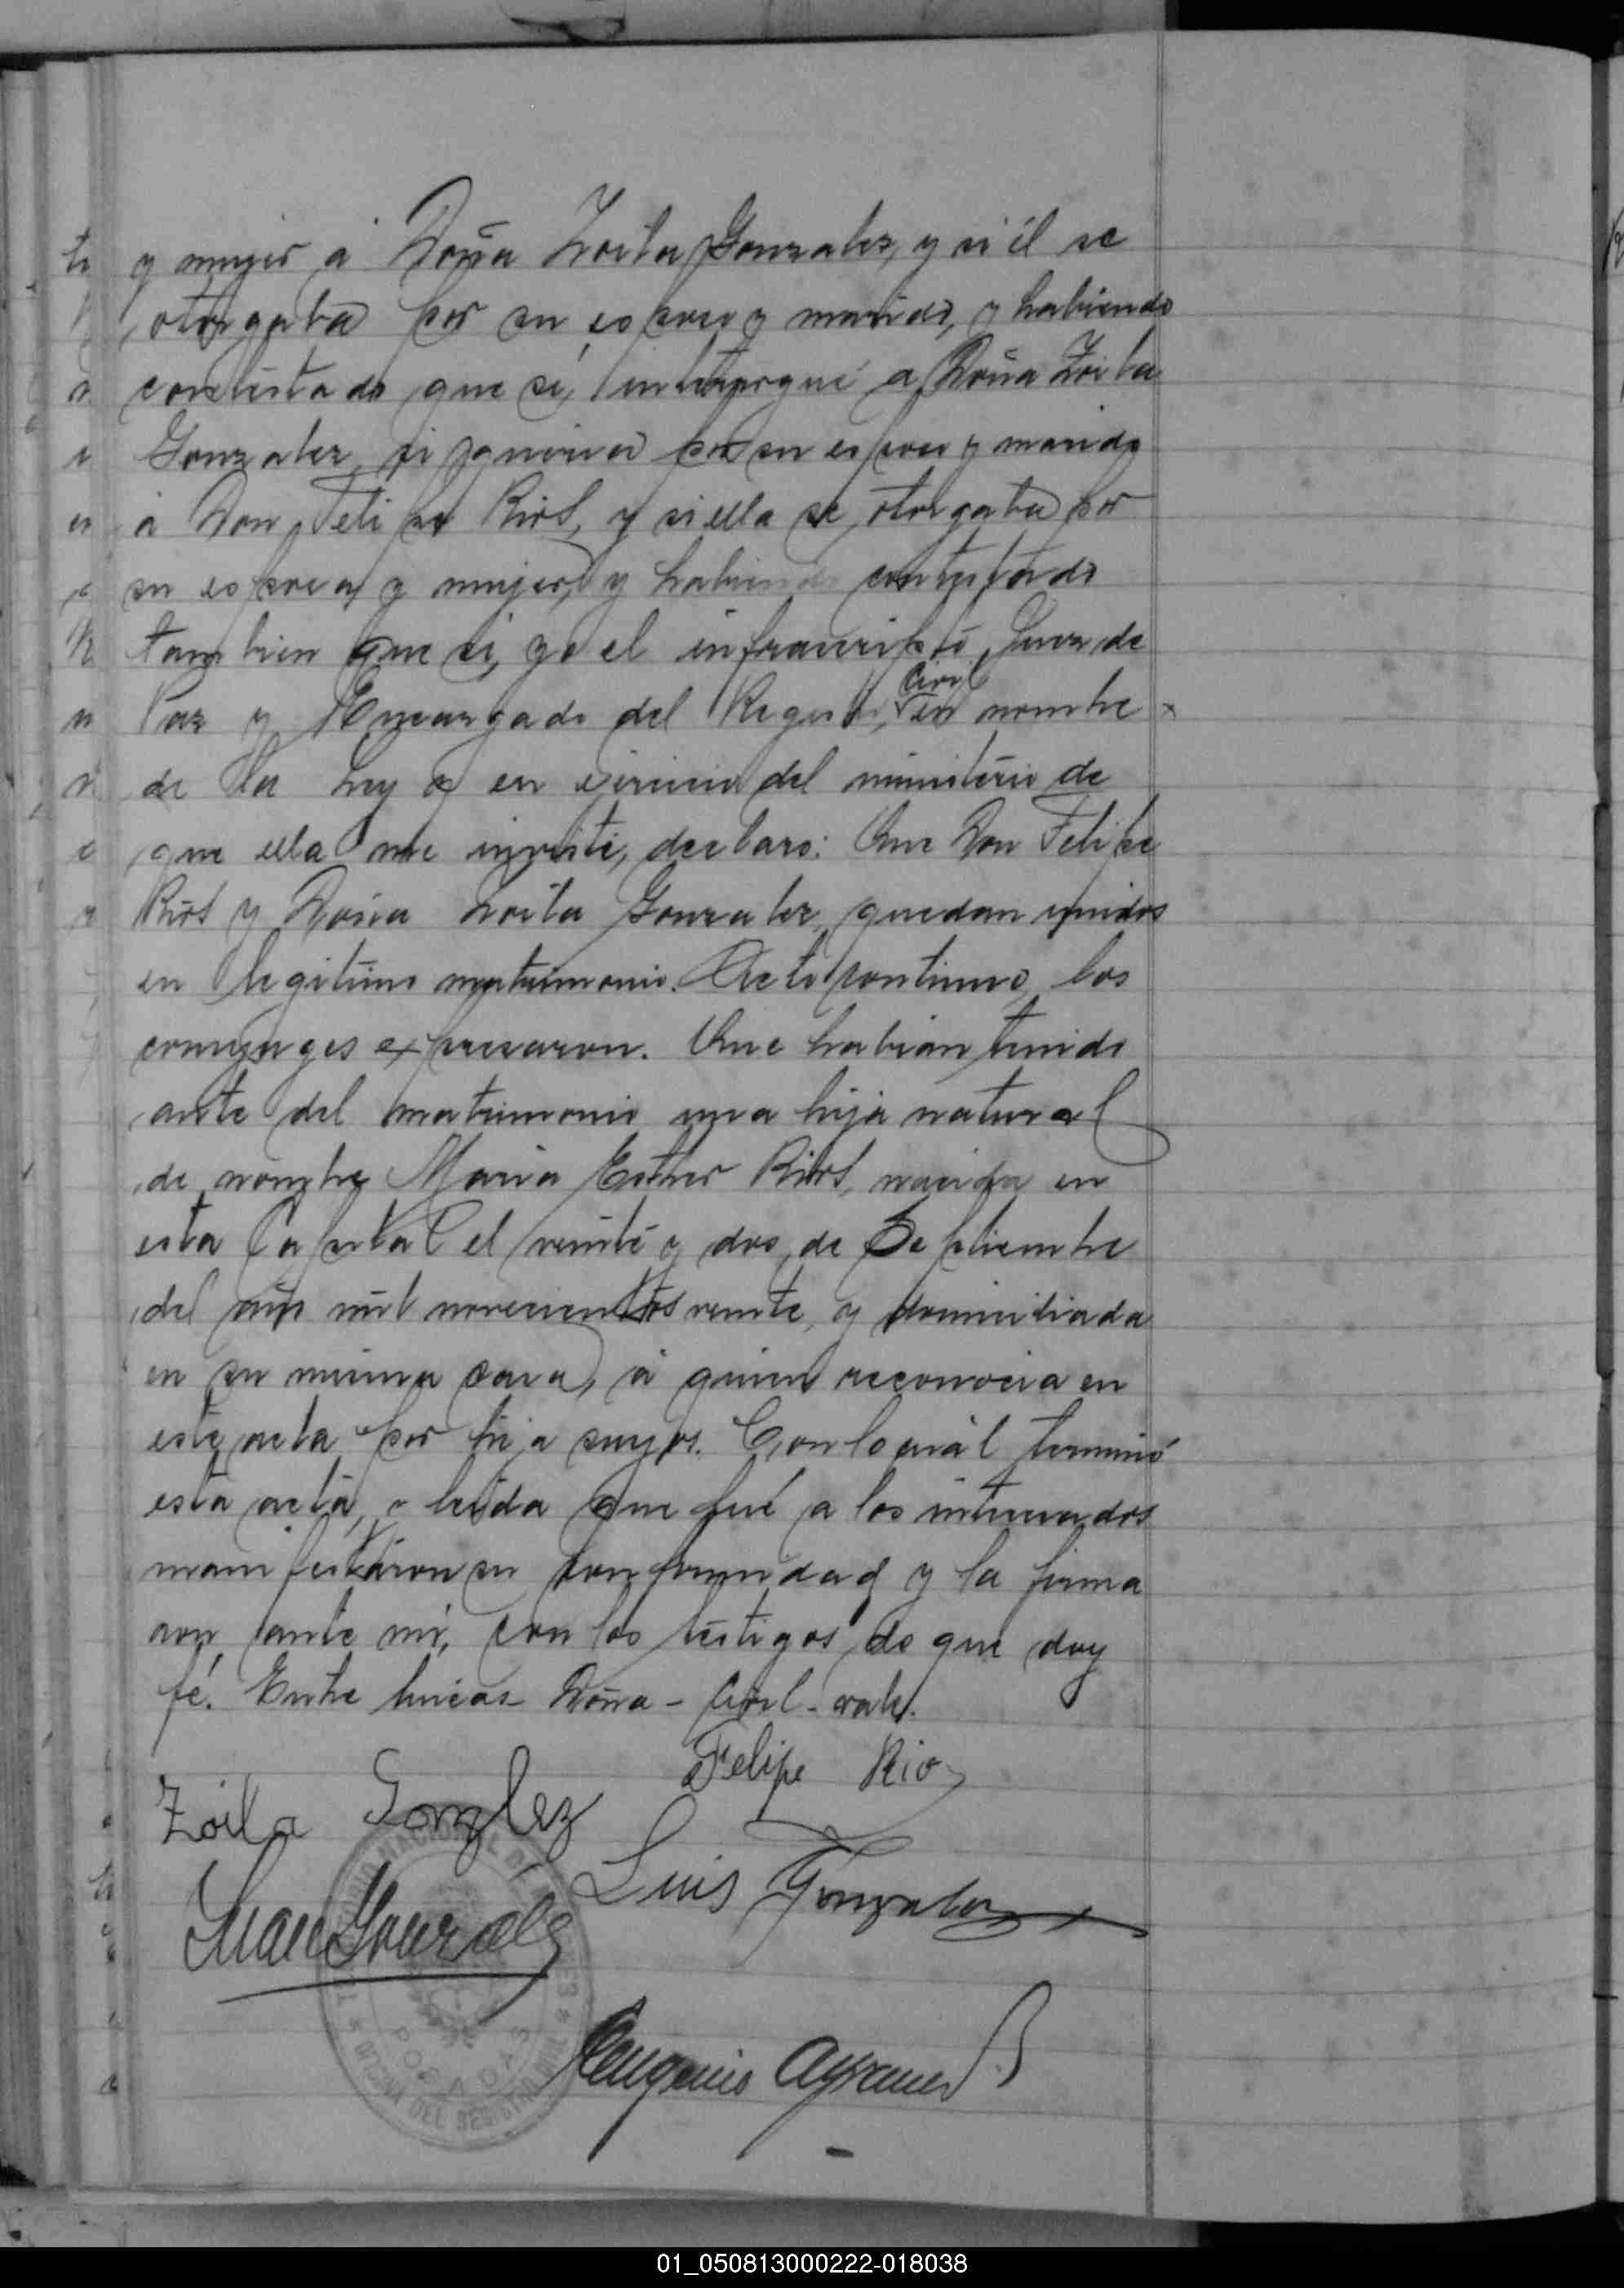 y mujer á Doña Zoila Gonzalez, y si él se
otorgaba por su esposo y marido, y habiendo
contestado que sí, interrogué a Doña Zoila
Gonzalez, si queria por su esposo y marido
á Don Felipe Rios, y si ella se otorgaba por
su esposa y mujer, y habiendo contestado
tambien que si, yo el infrascripto Juez de
Paz y Encargado del Registro, Civil en nombre
de la Ley y en ejercicio del ministerio de
que ella me inviste, declaro: Que Don Felipe
Rios y Doña Zoila Gonzalez, quedan unidos
en legitimo matrimonio. Acto continuo, los
conyuges expresaron. Que habian tenido
ante del matrimonio una hija natural
de nombre Maria Esther Rios, nacida en
esta Capital el veinte y dos de Septiembre
del año mil novecientos veinte, y domiciliada
en su misma casa, á quien reconocia en
este acta por hija suyos. Con lo cuál terminó
esta acta, y leida que fué a los interesados
manifestaron su conformidad y la firma
ron ante mí, con los testigos de que doy
fé. Entre lineas - Doña - Civil - vale.
Felipe Rios
Zoila Gonzlez
Luis Gonzalez
Juan Gonzalez
Eugenio
REGISTRO NACIONAL DE
POSADAS
OFICINA DEL REGISTRO
01_050813000222-018038